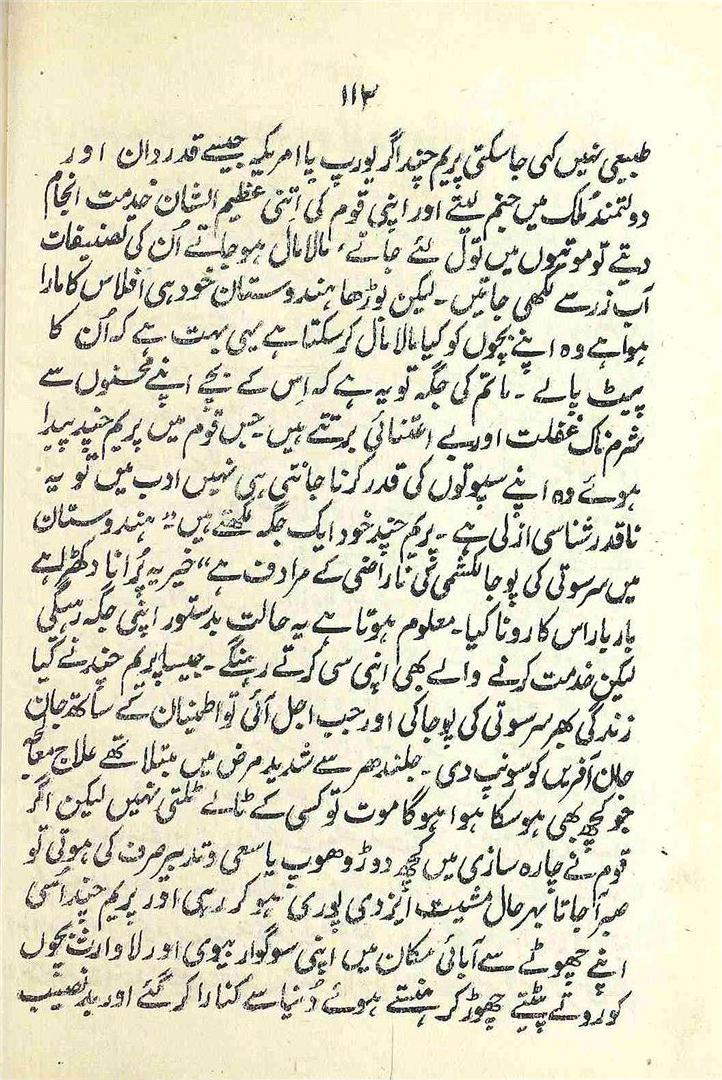 ۱۱۳
طبیعی نہیں کہی جاسکتی پریم چند اگر یورپ یا امریکہ جیسے قدردان اور
دولتمند ملک میں جنم لیتے اور اپنی قوم کی اتنی عظیم الشان خدمت انجام
دیتے تو موتیوں میں تول لئے جاتے، مالا مال ہوجاتے اُن کی تصنیفات
آب زر سے لکھی جاتیں۔ لیکن بوڑھا ہندوستان خود ہی افلاس کا مارا
ہوا ہے وہ اپنے بچوں کو کیا مالا مال کرسکتا ہے یہی بہت ہے کہ اُن کا
پیٹ پالے۔ ماتم کی جگہ تو یہ ہے کہ اس کے بچے اپنے محسنوں سے
شرمناک غفلت اور بے اعتنائی برتتے ہیں۔ جس قوم میں پریم چند پیدا
ہوئے وہ اپنے سپوتوں کی قدر کرنا جانتی ہی نہیں ادب میں تو یہ
ناقدر شناسی ازلی ہے۔ پریم چند خود ایک جگہ لکھتے ہیں ”ہندوستان
میں سرسوتی کی پوجا لکشمی کی ناراضی کے مرادف ہے“ خیر یہ پُرانا دکھڑا ہے
بار بار اس کا رونا کیا۔ معلوم ہوتا ہے یہ حالت بدستور اپنی جگہ رہیگی
لیکن خدمت کرنے والے بھی اپنی سی کرتے رہینگے۔ جیسا پریم چند نے کیا
زندگی بھر سرسوتی کی پوجا کی اور جب اجل آئی تو اطمینان کے ساتھ جان
جان آفریں کو سونپ دی۔ جلندھر سے شدید مرض میں مبتلا تھے علاج معالجہ
جو کچھ بھی ہوسکا ہوا ہوگا موت تو کسی کے ٹالے ٹلتی نہیں لیکن اگر
قوم نے چارہ سازی میں کچھ دوڑ دھوپ یا سعی و تدبیر صرف کی ہوتی تو
صبر آجاتا بہر حال مشیت ایزدی پوری ہو کر رہی اور پریم چند اُسی
اپنے چھوٹے سے آبائی مکان میں اپنی سوگوار بیوی اور لاوارث بچوں
کو روتے پیٹتے چھوڑ کر ہنستے ہوئے دُنیا سے کنارا کر گئے اور بدنصیب